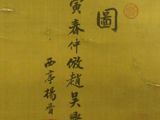 圖
寅春仲倣趙吳興
西亭楊晉